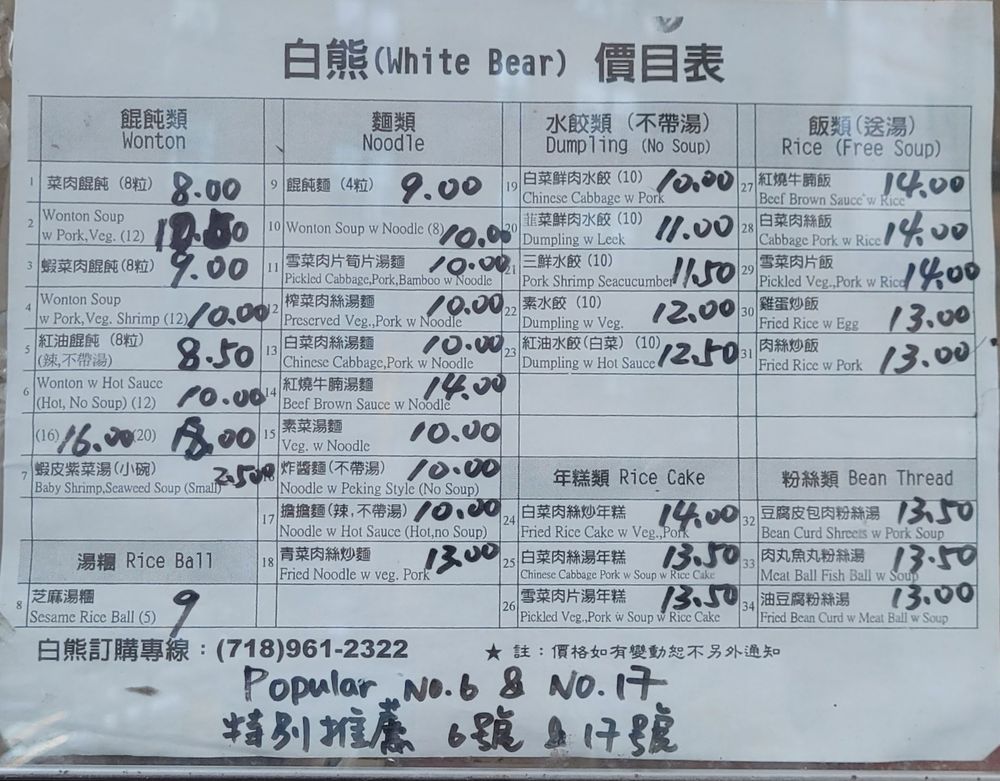 白熊(White Bear) 價目表
餛飩類
Wonton
1 菜肉餛飩 (8粒) 8.00
2 Wonton Soup
w Pork,Veg. (12)
3 蝦菜肉餛飩 (8粒) 9.00
4 Wonton Soup
w Pork,Veg. Shrimp (12) 10.00
5 紅油餛飩 (8粒)
(辣,不帶湯) 8.50
6 Wonton w Hot Sauce
(Hot, No Soup) (12) 10.00
(16) 16.00 (20) 18.00
7 蝦皮紫菜湯(小碗) 2.50
Baby Shrimp,Seaweed Soup (Small)
湯糰 Rice Ball
8 芝麻湯糰
Sesame Rice Ball (5) 9
麵類
Noodle
9 餛飩麵 (4粒) 9.00
10 Wonton Soup w Noodle (8) 10.00
11 雪菜肉片筍片湯麵 10.00
Pickled Cabbage,Pork,Bamboo w Noodle
12 榨菜肉絲湯麵 10.00
Preserved Veg.,Pork w Noodle
13 白菜肉絲湯麵 10.00
Chinese Cabbage,Pork w Noodle
14 紅燒牛腩湯麵 14.00
Beef Brown Sauce w Noodle
15 素菜湯麵 10.00
Veg. w Noodle
16 炸醬麵(不帶湯) 10.00
Noodle w Peking Style (No Soup)
17 擔擔麵(辣,不帶湯) 10.00
Noodle w Hot Sauce (Hot,no Soup)
18 青菜肉絲炒麵 13.00
Fried Noodle w veg. Pork
水餃類 (不帶湯)
Dumpling (No Soup)
19 白菜鮮肉水餃 (10) 10.00
Chinese Cabbage w Pork
20 韮菜鮮肉水餃 (10) 11.00
Dumpling w Leek
21 三鮮水餃 (10) 11.50
Pork Shrimp Seacucumber
22 素水餃 (10) 12.00
Dumpling w Veg.
23 紅油水餃(白菜) (10) 12.50
Dumpling w Hot Sauce
年糕類 Rice Cake
24 白菜肉絲炒年糕 14.00
Fried Rice Cake w Veg.,Pork
25 白菜肉絲湯年糕 13.50
Chinese Cabbage Pork w Soup w Rice Cake
26 雪菜肉片湯年糕 13.50
Pickled Veg.,Pork w Soup w Rice Cake
飯類(送湯)
Rice (Free Soup)
27 紅燒牛腩飯 14.00
Beef Brown Sauce w Rice
28 白菜肉絲飯 14.00
Cabbage Pork w Rice
29 雪菜肉片飯 14.00
Pickled Veg.,Pork w Rice
30 雞蛋炒飯 13.00
Fried Rice w Egg
31 肉絲炒飯 13.00
Fried Rice w Pork
粉絲類 Bean Thread
32 豆腐皮包肉粉絲湯 13.50
Bean Curd Shreets w Pork Soup
33 肉丸魚丸粉絲湯 13.50
Meat Ball Fish Ball w Soup
34 油豆腐粉絲湯 13.00
Fried Bean Curd w Meat Ball w Soup
白熊訂購專線：(718)961-2322
★ 註：價格如有變動恕不另外通知
Popular No.6 & No.17
特別推薦 6號 & 17號